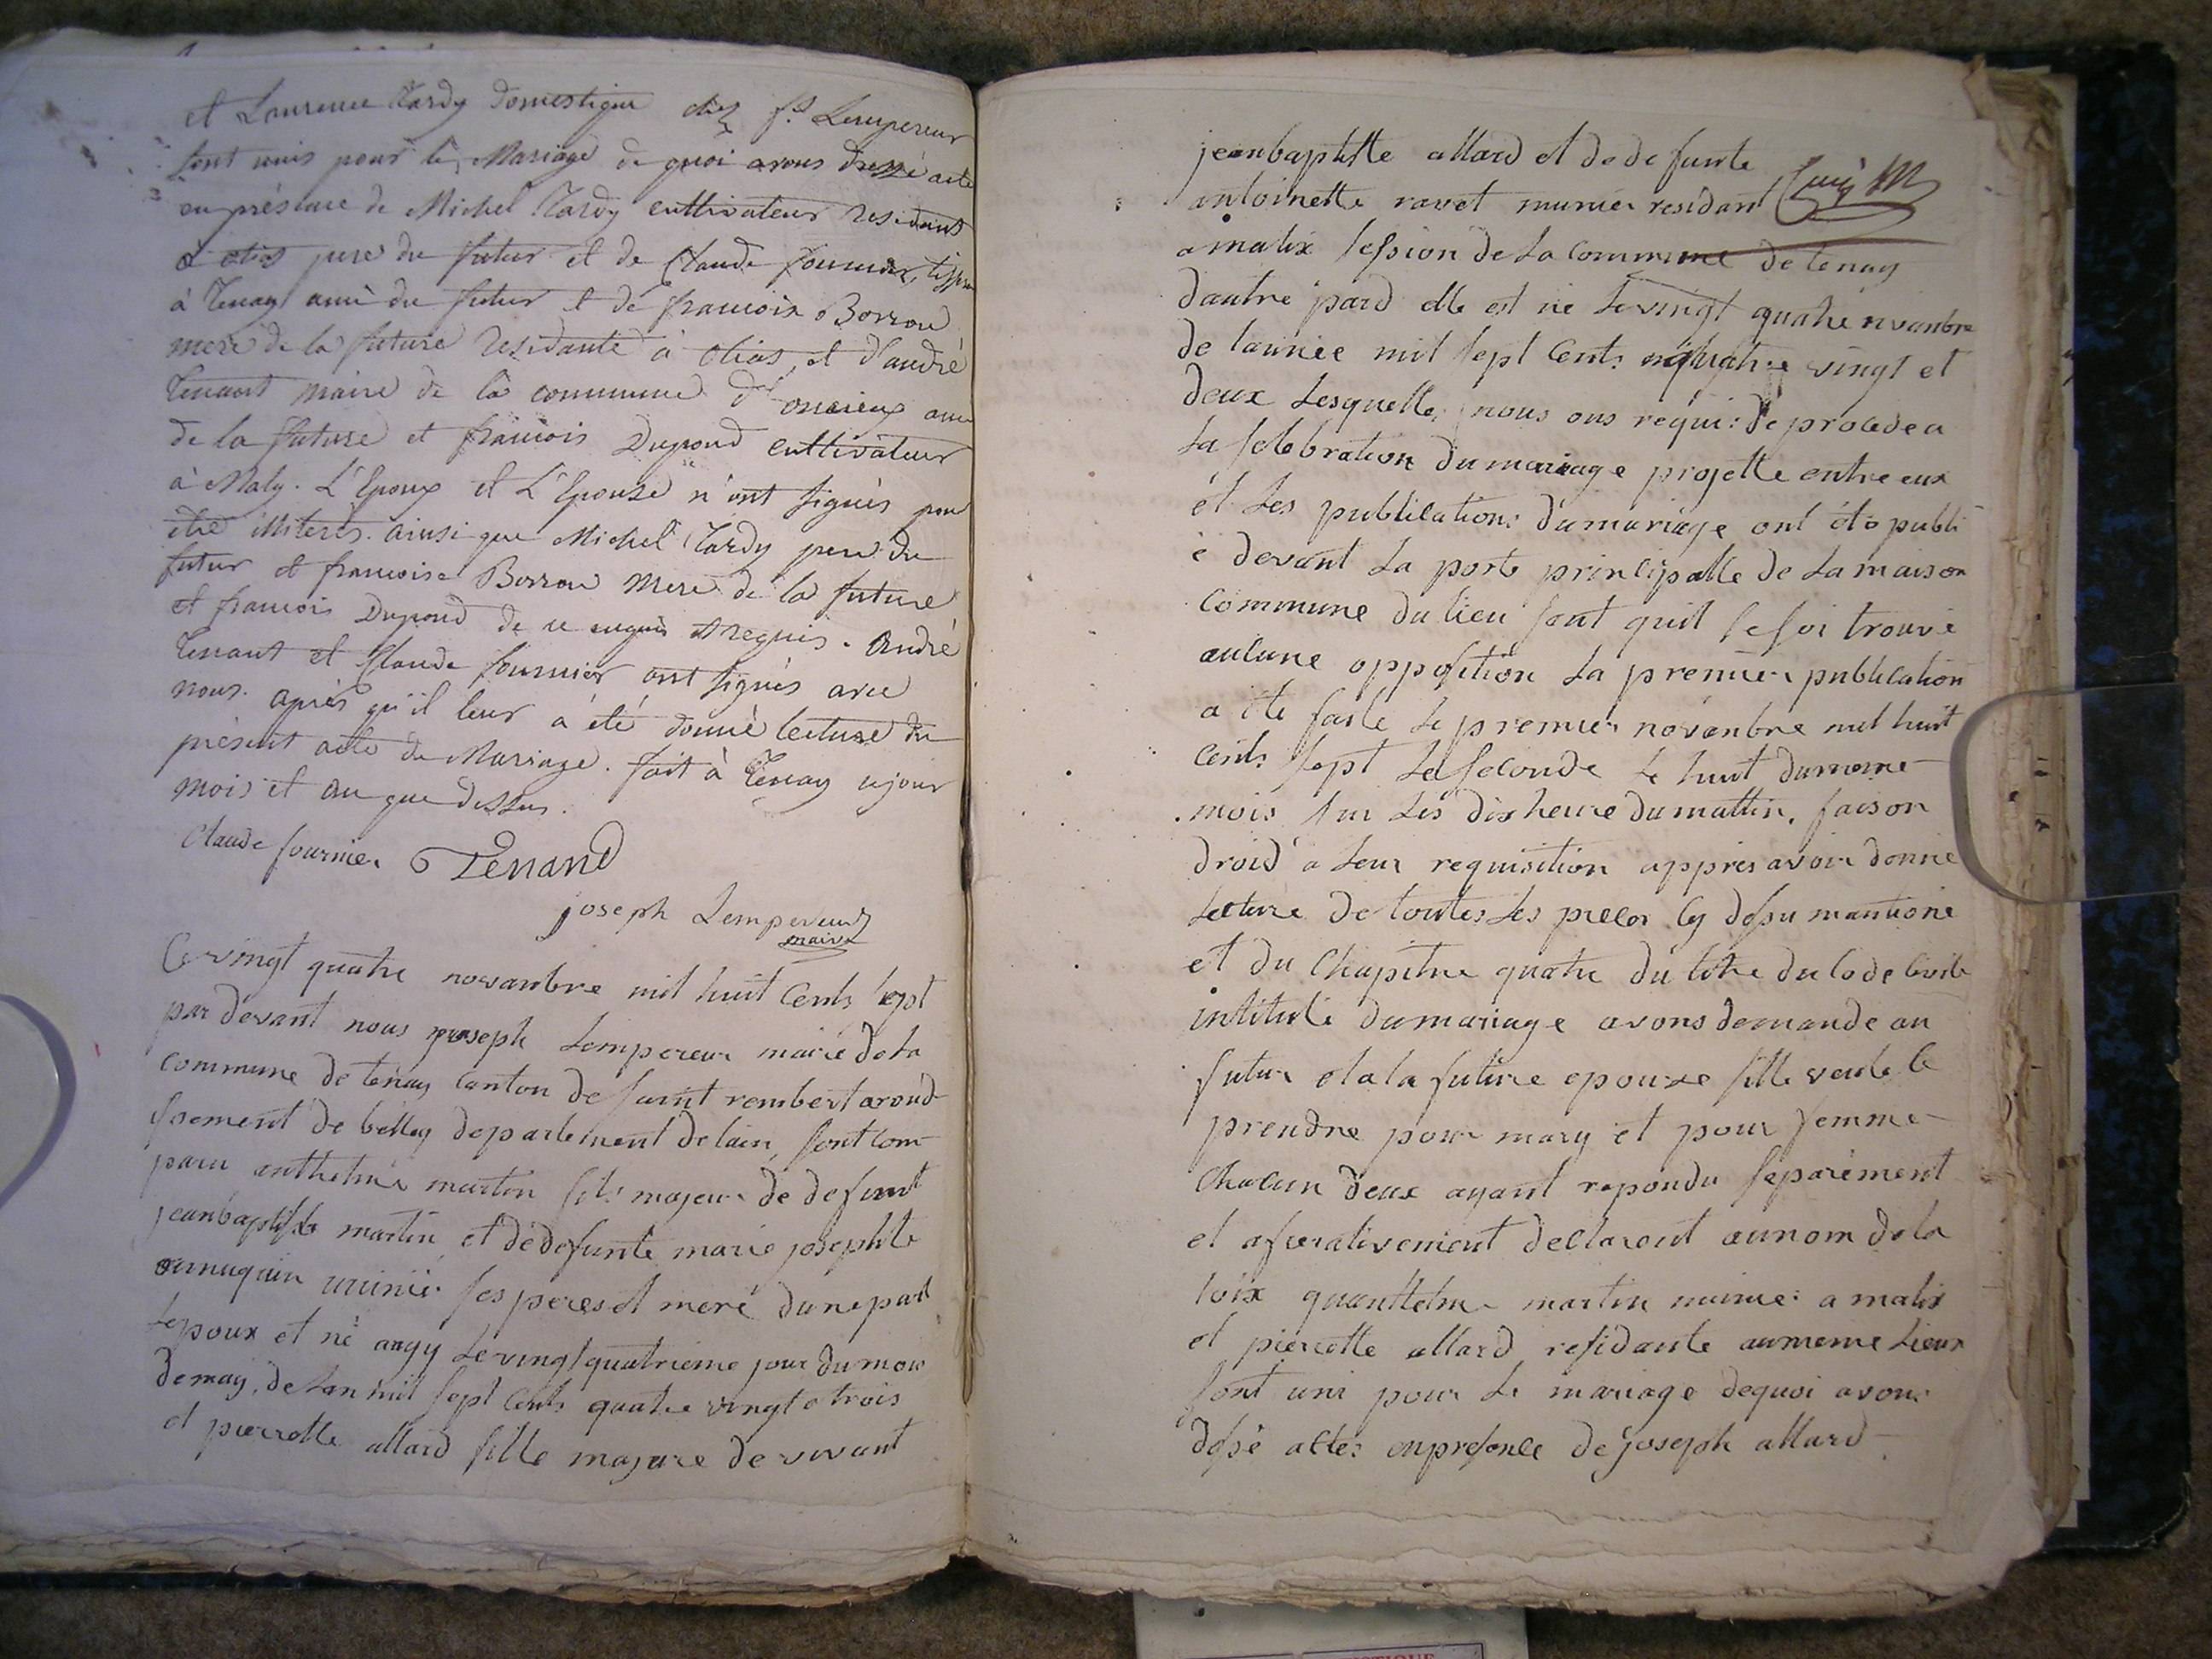 et Laurence Tardy domestique chez f.s Lempereur
sont unis pour le Mariage de quoi avons dressé acte
en présence de Michel Tardy cultivateur residant
à père du futur et de Claude fournier, 
à Tenay ami du futur et de francoise Borron
mere de la future residante à et d'andré
Tenant maire de la commune d'oncieux ami
de la future et francois Dupond cultivateur
à Maly. L'Epoux et L'Epouse n'ont signés pour
être illiterés. ainsi que Michel Tardy pere du
futur et francoise Borron Mere de la future
et francois Dupond de ce enquis et requis. André
Tenant et Claude fournier ont signés avec
nous. après qu'il leur a été donné lecture du
présent acte de Mariage. fait à Tenay ce jour
mois et an que dessus.
Claude fournier Tenand
joseph Lempereur
maire
Ce vingt quatre novanbre mil huit Cents sept
par devant nous joseph Lempereur maire de La
commune de tenay canton de saint rembert arond
issement de belley departement de lain, sont com
paru anthelme martin fils majeur de defunt
jeanbaptiste martin et de defunte marie josephte
munier ses peres et meré dune part
Lepoux et né Le vingt quatrieme jour du mois
de may, de Lan mil sept Cents quatre vingt e trois
et pierrette allard fille majeure de vivant
jeanbaptiste allard et de defunte
antoinette ravet munier residant
a malix session de La commune de tenay
dautre pard elle est né Le vingt quatre nvanbre
de lannee mil sept Cents quatre vingt et
deux Lesquelle nous ons requis de procede a
La selebration du mariage projette entre eux
et Les publications du mariage ont été publi
é devant La porte principalle de La maison
commune du lieu sant quil se soi trouvé
aucune opposition La premier publication
a ete faite Le premier novanbre mil huit
Cents sept La seconde Le huit du meme
mois sur Les dix heure du mattin, faison
droid a Leur requisition appres avoir donné
Lecture de toutes Les pieces cy desu mantioné
et du Chapitre quatre du titre du Code Civile
intitulé du mariage avons demande au
futur et a la future epouse sille veule ce
prendre pour mary et pour femme
Chacun deux ayant repondu separément
et afirmativement declarent au nom de la
loix quanthelme martin munier a malix
et pierrette allard residante au meme Lieux
sont uni pour Le mariage dequoi avons
désé actes en presence de joseph allard